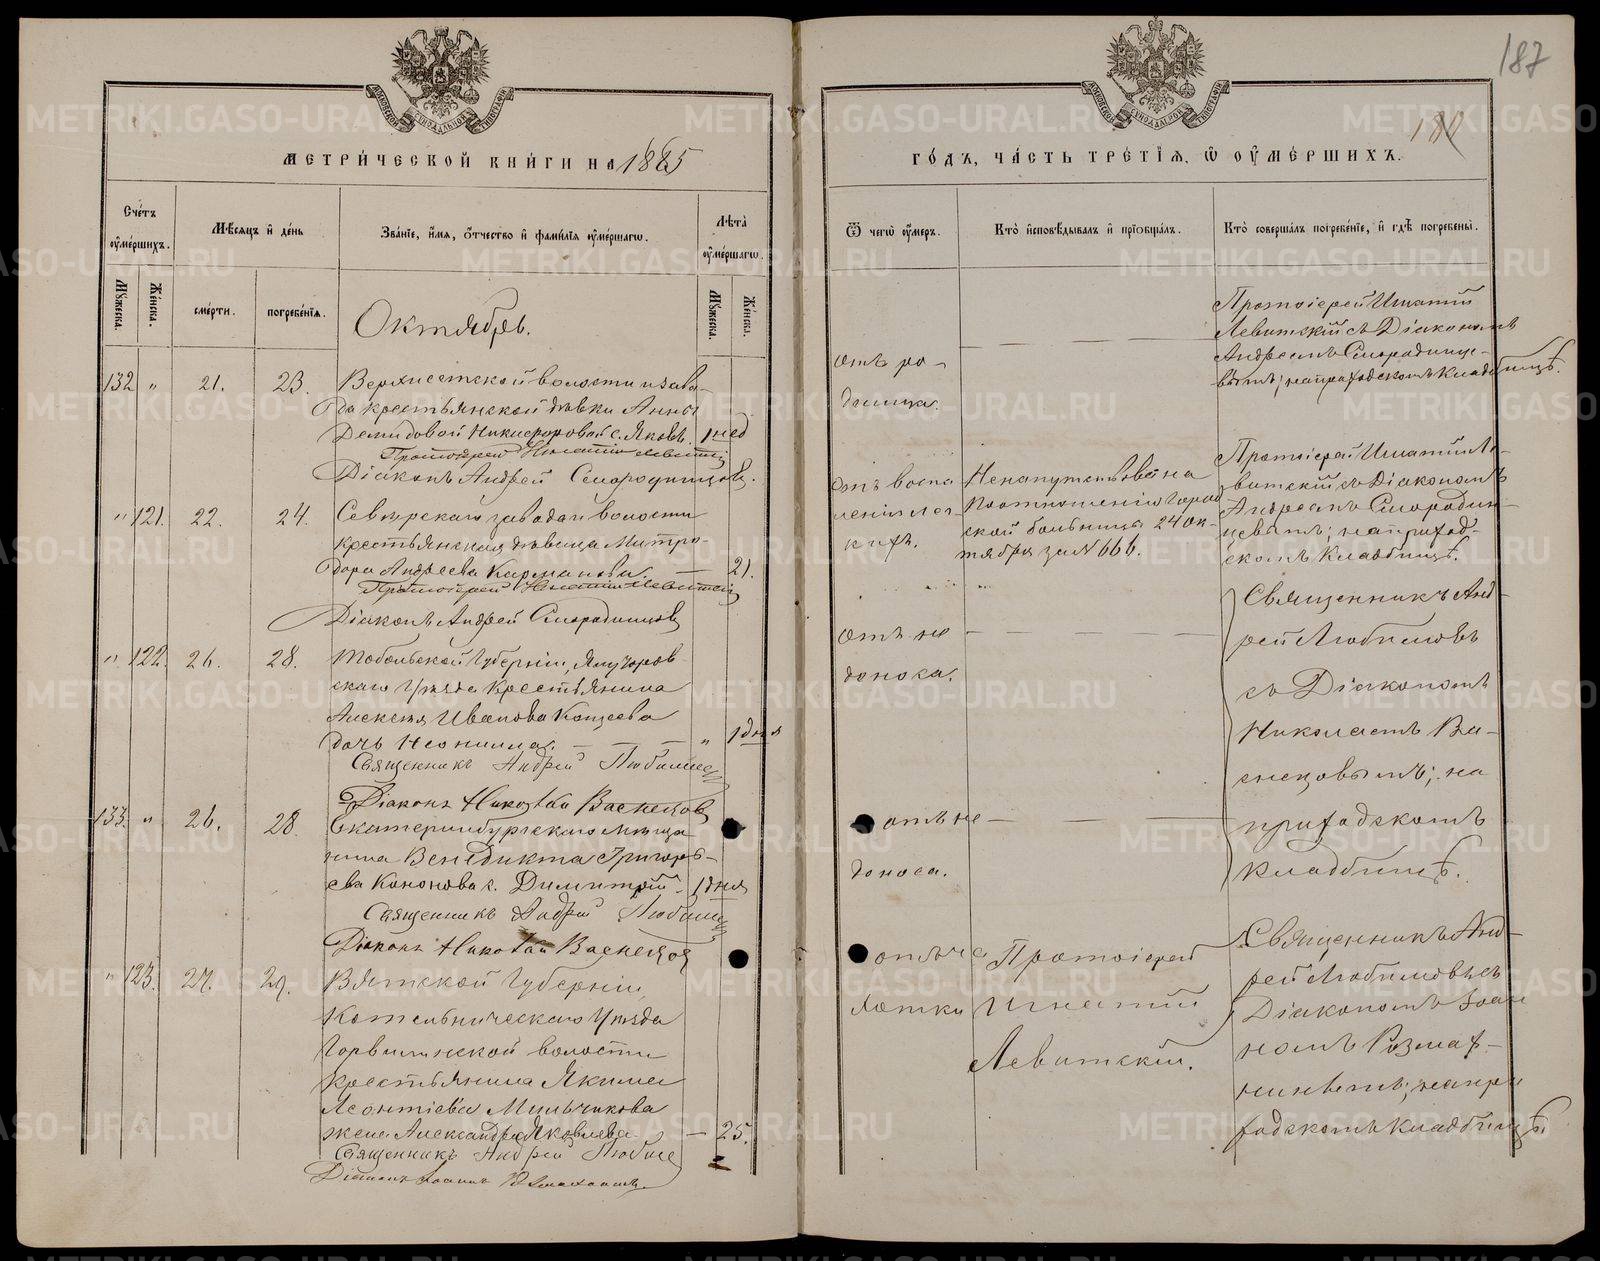 187
МЕТРИ́ЧЕСКОЙ КНИ́ГИ НА 1885
ГО́ДЪ, ЧА́СТЬ ТРЕ́ТІѦ, Ѽ ОУ҆МЕ́РШИХЪ.
Сче́тъ оу҆ме́ршихъ.
Мѣ́сѧцъ и҆ де́нь
Зва́ніе, и҆́мѧ, ѻ҆́тчество и҆ фами́лїѧ оу҆ме́ршагѡ.
Лѣта̀ оу҆ме́ршагѡ.
Ѿ чегѡ̀ оу҆́меръ.
Кто̀ и҆сповѣ́дывалъ и҆ прїѡбща́лъ.
Кто̀ соверша́лъ погребе́нїе, и҆ гдѣ̀ погребены̀.
Мꙋ́жеска.
Же́нска.
сме́рти.
погребе́нїѧ.
Мꙋ́жеска.
Же́нска.
Октябрь.
132 " 21. 23.
Верхисетской волости и заво-
да крестьянской дѣвки Анны
Демидовой Никифоровой с. Яковъ. 1 нед
Протоіерей Игнатій Левитскій
Діаконъ Андрей Смородинцовъ.
отъ ро-
димца.
Протоіерей Игнатій
Левитскій съ Діакономъ
Андреемъ Смородинце-
вымъ; на приходскомъ кладбищѣ.
" 121. 22. 24.
Сѣверскаго завода и волости
крестьянская дѣвица Митро-
дора Андреева — 21.
Протоіерей Игнатій Левитскій
Діаконъ Андрей Смородинцовъ
отъ воспа
ленія лег-
кихъ.
Ненапутствована
по отношенію город
ской больницы 24 ок-
тября за № 666.
Протоіерей Игнатій Ле-
витскій съ Діакономъ
Андреемъ Смородин-
цевымъ; на приход-
скомъ кладбищѣ.
" 122. 26. 28.
Тобольской Губерніи, Ялуторов-
скаго Уѣзда крестьянина
Алексѣя Иванова Кощеева
дочь Неонилла. — — — " 1 дня
Священникъ Андрей Любимовъ
Діаконъ Николай Васнецовъ
отъ не
доноса.
Священникъ Анд-
рей Любимовъ
съ Діакономъ
Николаемъ Ва-
снецовымъ; на
приходскомъ
кладбищѣ.
133. " 26. 28.
Екатеринбургскаго мѣща
нина Венедикта Григорь-
ева Кононова с. Димитрій. 1 дня
Священникъ Андрей Любимовъ
Діаконъ Николай Васнецов
отъ не
доноса.
" 123. 27. 29.
Вятской Губерніи,
Котельническаго Уѣзда
волости
крестьянина Якима
Леонтіева Мильчикова
жена Александра Яковлева. — 25.
Священникъ Андрей Любимо
Діаконъ Іоаннъ
отъ ча
хотки
Протоіерей
Игнатій
Левитскій.
Священникъ Анд-
рей Любимовъ съ
Діакономъ Іоан
номъ Размах-
нинымъ; на при
ходскомъ кладбищѣ